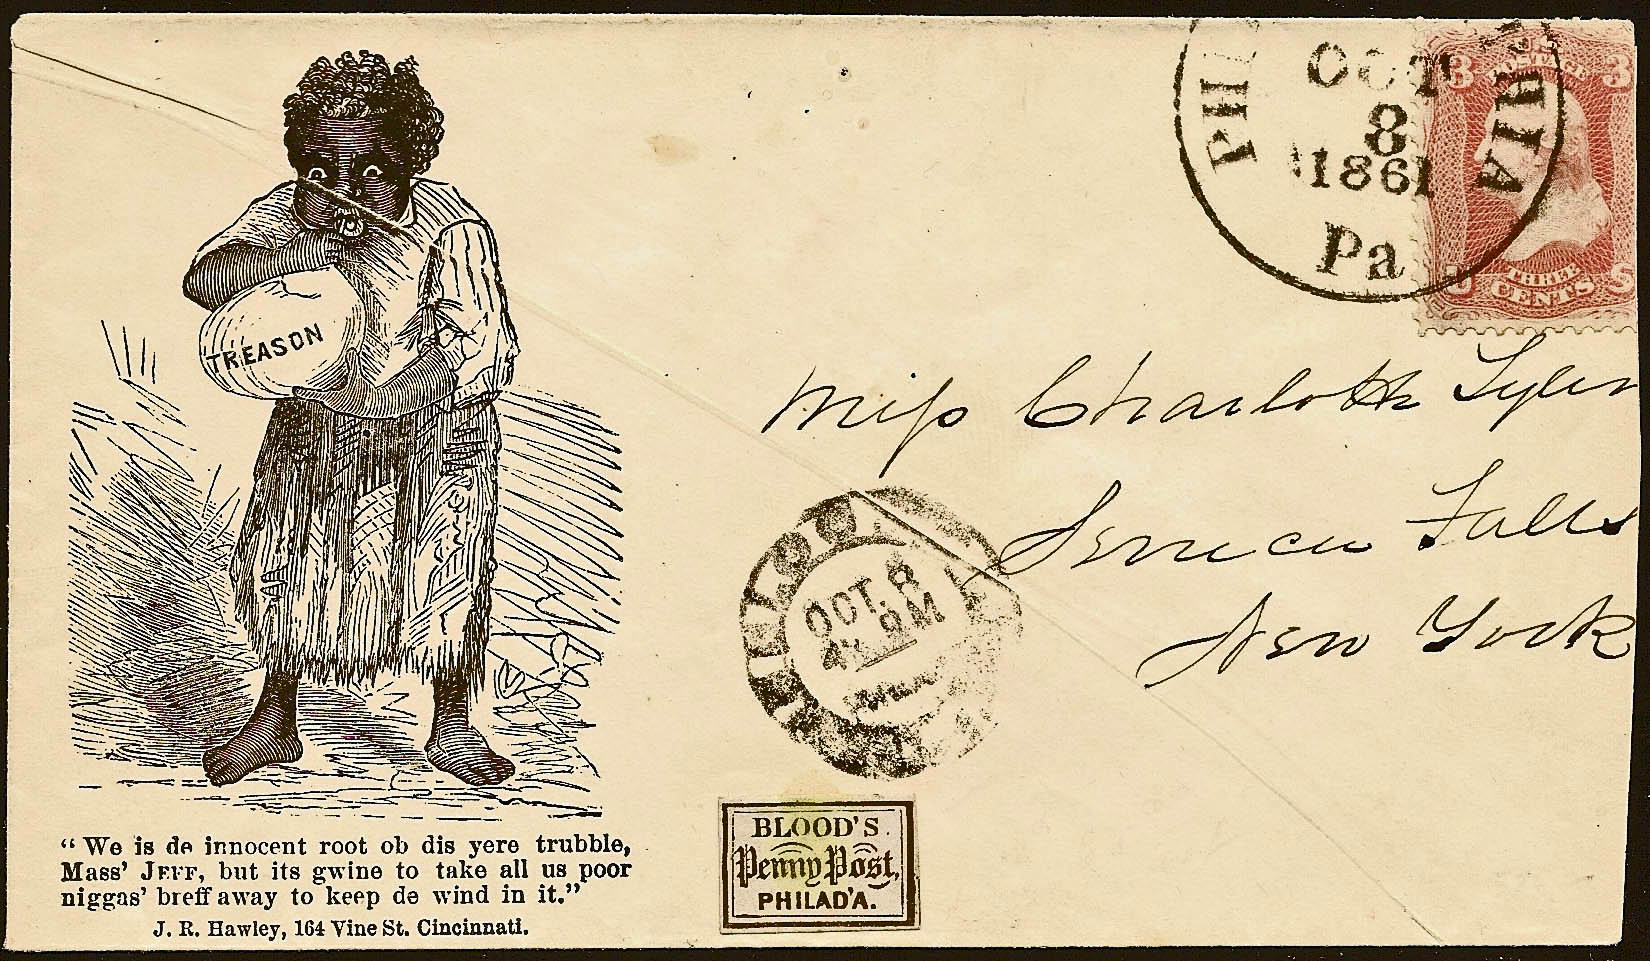 TREASON
“We is de innocent root ob dis yere trubble,
Mass' JEFF, but its gwine to take all us poor
niggas' breff away to keep de wind in it.”
J. R. Hawley, 164 Vine St. Cincinnati.
OCT
8
1861
Pa
3 POSTAGE 3
THREE
CENTS
Miss Charlotte Tyler
Seneca Falls
New York
OCT. 8
BLOOD'S
Penny Post,
PHILAD'A.